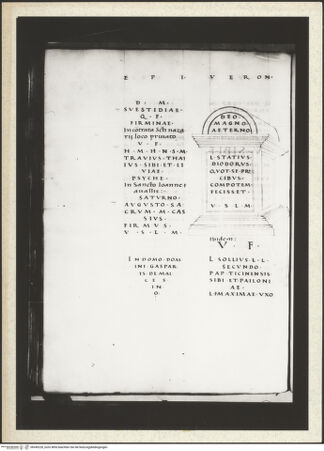 E P I VERON
D · M ·
SVESTIDIAE ·
Q · F ·
FIRMINAE ·
In contrata Scti naza
rij loco priuato
V · F ·
H · M · H · N · S · M ·
TRAVIVS · THAI
IVS · SIBI · ET · LI
VIAE ·
PSYCHE ·
In Sancto Ioanne i
SATVRNO ·
AVGVSTO · SA
CRVM · M · CAS
SIVS ·
FIRMVS ·
V · S · L · M ·
IN DOMO · DOM
INI · GASPAR
IS · DE MAI
CES
IN
O ·
DEO
MAGNO
AETERNO
L · STATIVS
DIODORVS ·
QVOT · SE · PR
CIBVS ·
COMPOTEM
FECISSET ·
V · S · L · M
Ibidem :
V · F ·
L · SOLLIVS · L · L ·
SECVNDO
PAP · TICINENSIS
SIBI · ET PAILONI
AE ·
L · MAXIMAE · VXO